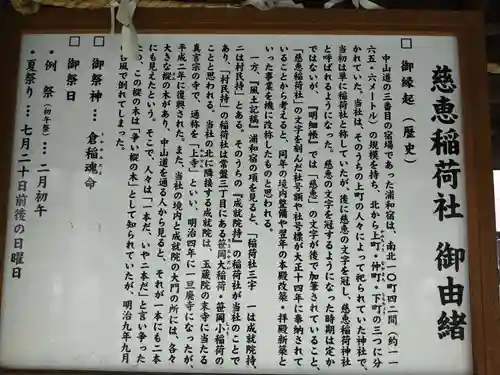 慈恵稲荷社 御由緒
□ 御縁起（歴史）
中山道の三番目の宿場であった浦和宿は、南北一〇町四二間（約一一
六五・六メートル）の規模を持ち、北から上町・仲町・下町の三つに分
かれていた。当社は、そのうちの上町の人々によって祀られていた神社で、
当初は単に稲荷社と称していたが、後に慈恵の文字を冠し、慈恵稲荷神社
と呼ばれるようになった。慈恵の文字を冠するようになった時期は定か
ではないが、『明細帳』では「慈恵」の文字が後で加筆されていること、
「慈恵稲荷社」の文字を刻んだ社号額や社号標が大正十四年に奉納されて
いることから考えると、同年の境内整備や翌年の本殿改築・拝殿新築と
いった事業を機に改称したものと思われる。
一方、『風土記稿』浦和宿の項を見ると、「稲荷社三字　一は成就院持、
二は村民持」とある。そのうちの「成就院持」の稲荷社が当社のことで
あり、「村民持」の稲荷社は常盤三丁目にある笹岡大稲荷・笹岡小稲荷の
ことと思われる。当社の北に隣接する成就院は、玉蔵院の末寺に当たる
真言宗の寺で、通称を「上寺」といい、明治四年に一旦廃寺になったが、
平成二年に復興された。また、当社の境内と成就院の大門の所には、各々
大きな樅の木があり、中山道を通る人から見ると、それが一本にも二本
にも見えたという。そこで、人々は「一本だ、いや二本だ」と言い争った
ため、この樅の木は「争い樅の木」として知られていたが、明治九年九月
の暴風で倒れてしまった。
□ 御祭神… 倉稲魂命
□ 御祭日
・例　祭（初午祭）… 二月初午
・夏祭り… 七月二十日前後の日曜日